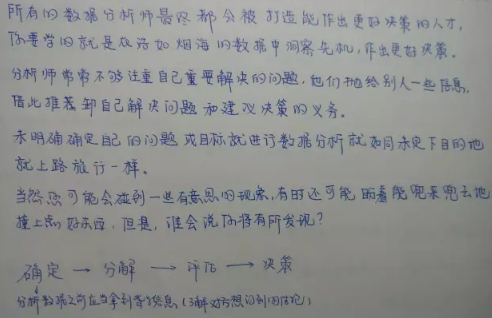 所有的数据分析师最终都会被打造能作出更好决策的人才,
你要学的就是在浩如烟海的数据中洞察先机,作出更好决策。
分析师常常不够注重自己重要解决的问题,他们抛给别人一些信息,
借此推卸自己解决问题和建议决策的义务。
未明确确定自己的问题或目标就进行数据分析就如同未定下目的地
就上路旅行一样。
当然您可能会碰到一些有意思的现象,有时还可能盼着能兜来兜去地
撞上点好东西,但是,谁会说你将有所发现?
确定 → 分解 → 评估 → 决策
分析数据之前应当拿到等多信息(了解对方想问到的结论)